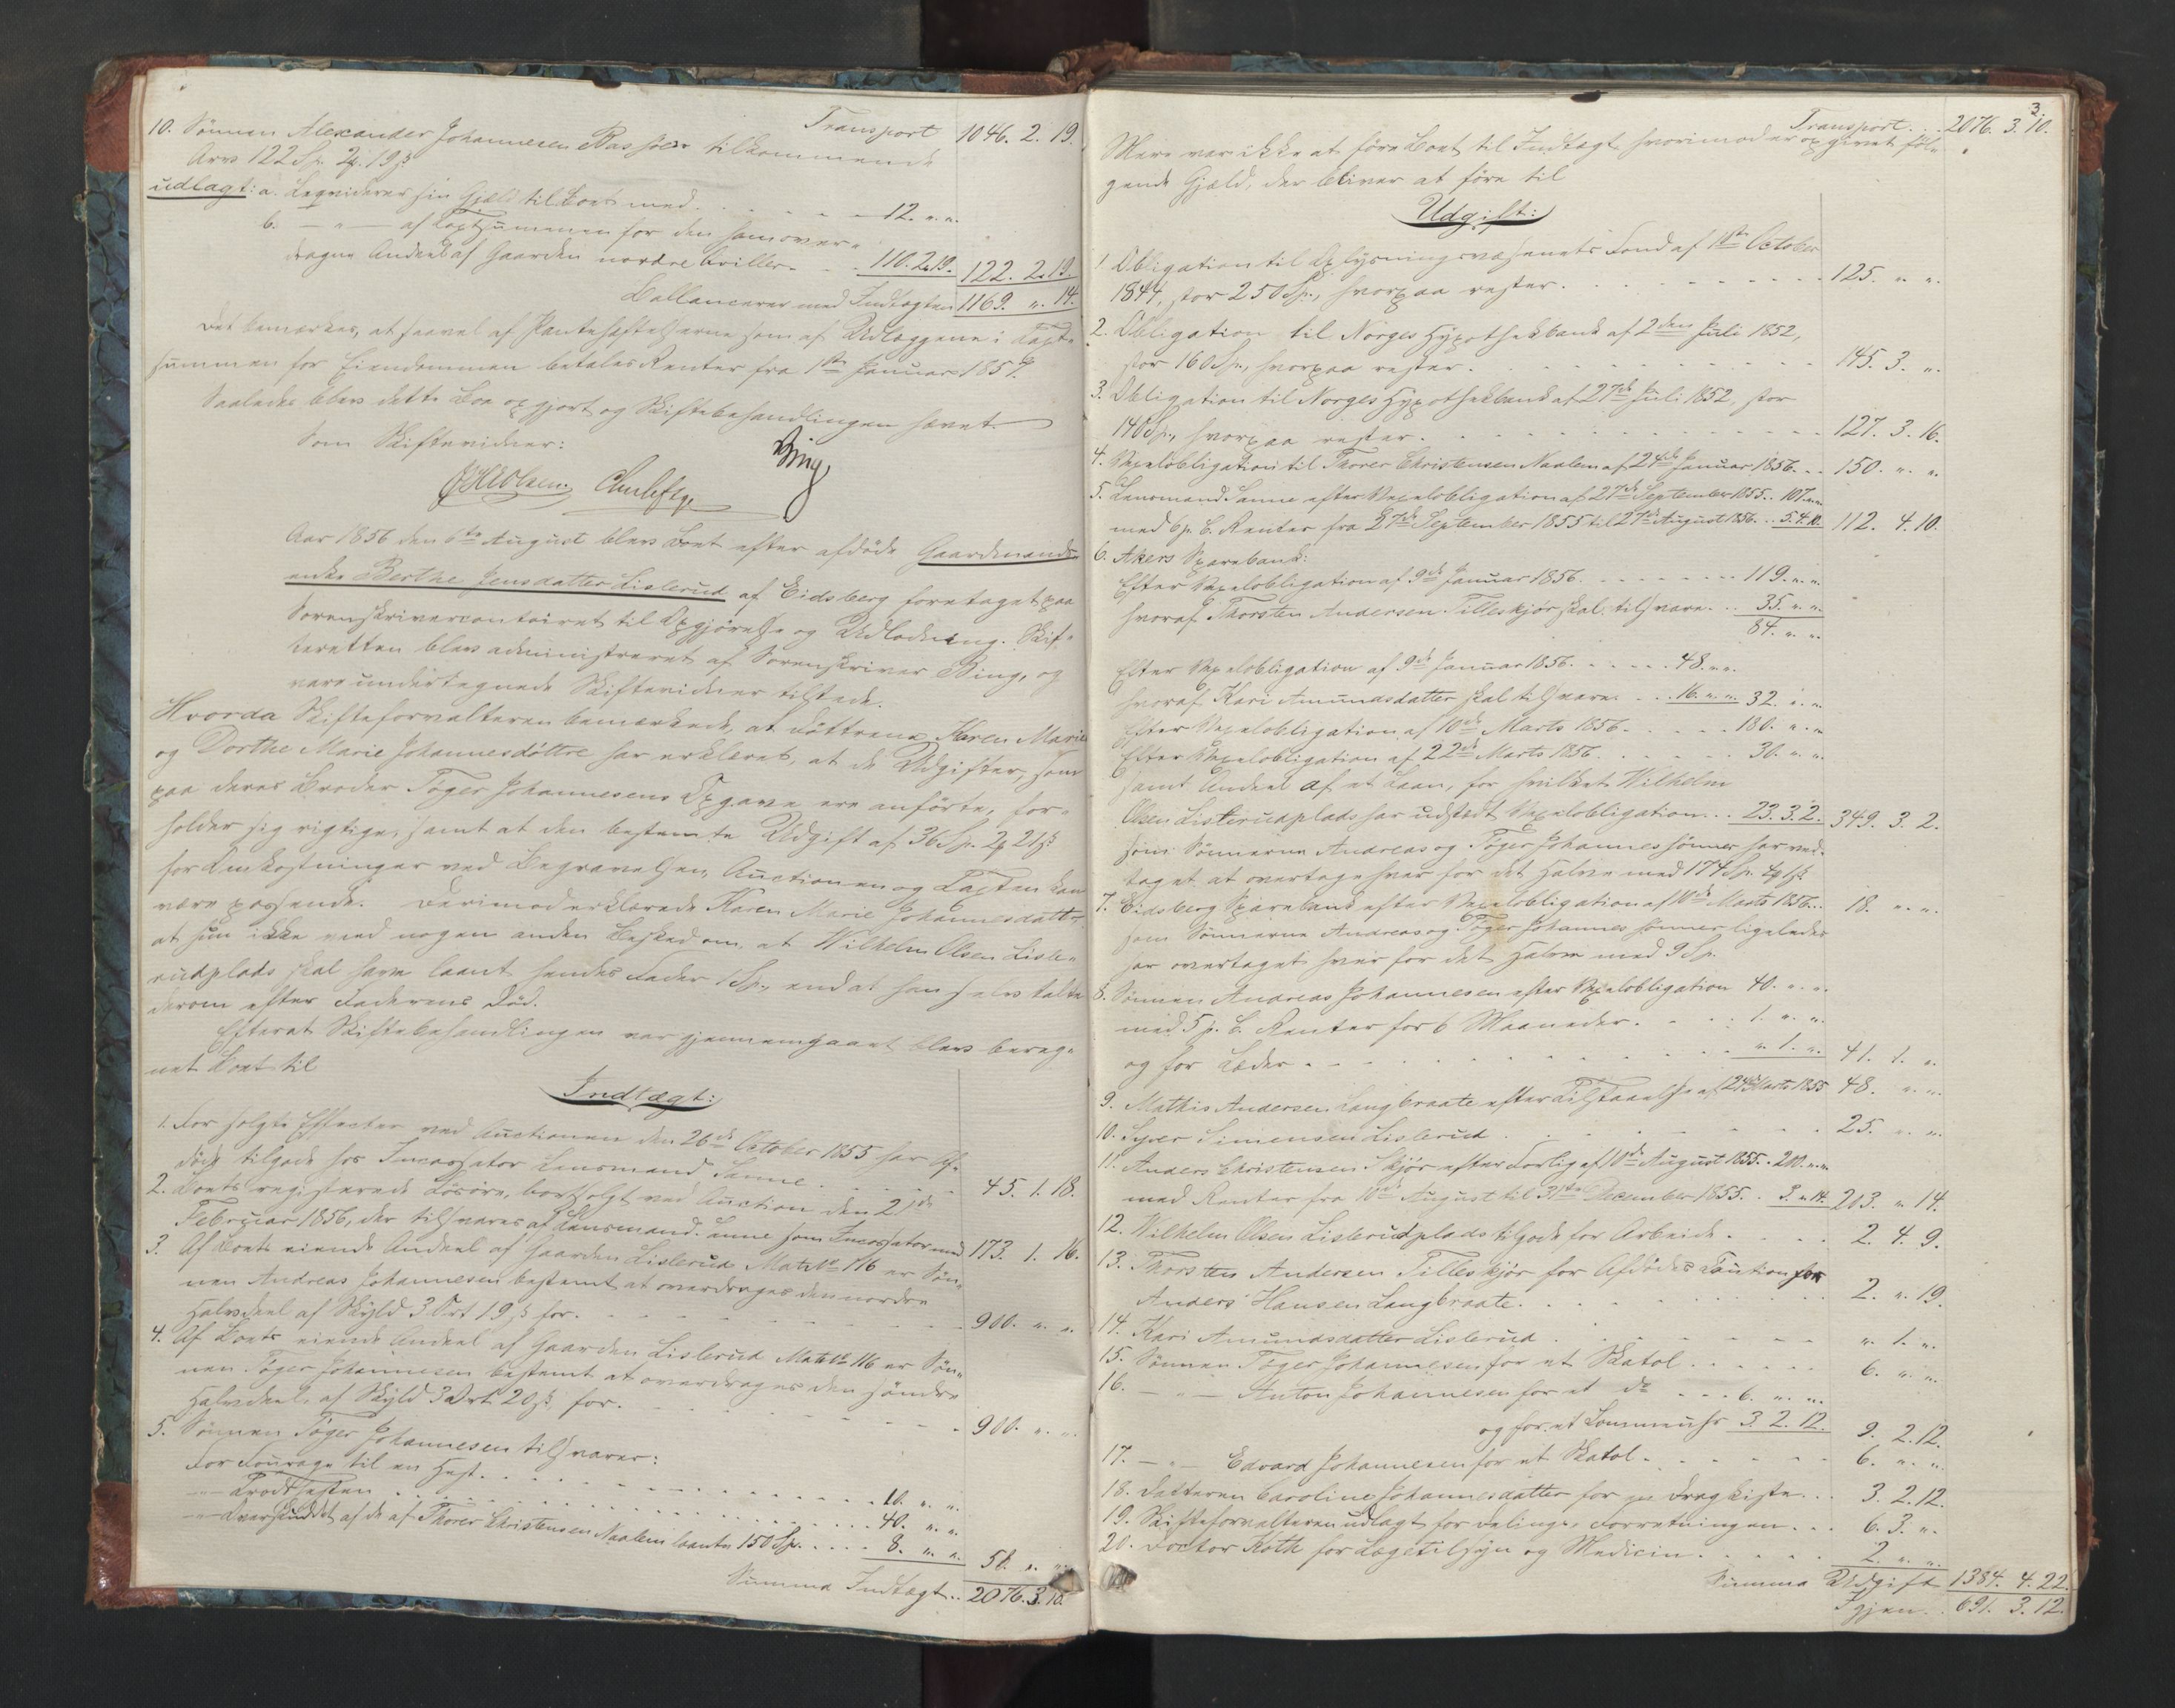 Transport 1046. 2. 19.
10. Sönnen Alexander Johannesen tilkommende
Arv 122 Sp. 2 19 ß
udlagt: a. Liqviderer sin Gjeld til Boet med 12. " "
b. — " — af Taxtsummen for den ham over-
dragne Andeel af Gaarden nordre 110. 2. 19. 122. 2. 19.
Ballancerer med Indtægten 1169. " 14.
Det bemærkes, at saavel af Pantehæftelserne som af Udlæggene i Taxt-
summen for Eiendommen betales Renter fra 1ste Januar 1857.
Saaledes blev dette Boe opgjort og Skiftebehandlingen hævet.
Som Skiftevidner: Bing
Aar 1856 den 6te August blev Boet efter afdöde Gaardmands-
enke Berthe Jensdatter Lislerud af Eidsberg foretaget paa
Sorenskrivercontoiret til Opgjörelse og Udlodning. Skif-
teretten blev administreret af Sorenskriver Bing, og
vare undertegnede Skiftevidner tilstede.
Hvorda Skifteforvalteren bemærkede, at Döttrene Karen Marie
og Dorthe Marie Johannesdöttre har erkleret, at de Udgifter, som
paa deres Broder Töger Johannesens Opgave ere anförte, for-
holder sig rigtige, samt at den bestemte Udgift af 36 Sp. 2 21 ß
for Omkostninger ved Begravelsen, Auctionen og Taxten kan
være passende. Derimod erklærede Karen Marie Johannesdatter
at hun ikke veed nogen anden Besked om, at Wilhelm Olsen Lisle-
rudplads skal have laant hendes Fader 1 Sp., end at han selv talte
derom efter Faderens Död.
Efterat Skiftebehandlingen var gjennemgaaet blev bereg-
net Boet til
Indtægt:
1. For solgte Effecter ved Auctionen den 26de October 1855 har Af-
döde tilgode hos Incassator Lensmand Sanne 45. 1. 18.
2. Boets registerede Lösöre, bortsolgt ved Auction den 21de
Februar 1856, der tilsvares af Lensmand Sanne som Incassator med 173. 1. 16.
3. Af Boets eiende Andeel af Gaarden Lislerud Matr. No 116 er Søn-
nen Andreas Johannesen bestemt at overdrages den nordre
Halvdeel af Skyld 3 Ort 19 ß for 900. " "
4. Af Boets eiende Andeel af Gaarden Lislerud Matr. No 116 er Søn-
nen Töger Johannesen bestemt at overdrages den söndre
Halvdeel, af Skyld 3 Ort 20 ß, for 900. " "
5. Sönnen Töger Johannesen tilsvarer:
For Fourage til en Hest 10. " "
— " — 40. " "
— Overskuddet af de af Thorer Christensen Naalem laante 150 Sp. 8. " " 58. " "
Summa Indtægt 2076. 3. 10.
3.
Transport 2076. 3. 10.
Mere var ikke at före Boet til Indtægt hvorimod er opgivet föl-
gende Gjæld, der bliver at före til
Udgift:
1. Obligation til Oplysningsvæsenets Fond af 11te October
1844, stor 250 Sp., hvorpaa rester 125. " "
2. Obligation til Norges Hypothekbank af 2den Juli 1852,
stor 160 Sp., hvorpaa rester 145. 3. "
3. Obligation til Norges Hypothekbank af 27de Juli 1852, stor
140 Sp., hvorpaa rester 127. 3. 16.
4. Vexelobligation til Thorer Christensen Naalem af 24de Januar 1856 150. " "
5. Lensmand Sanne efter Vexelobligation af 27de September 1855 107. " "
med 6 p. C. Renter fra 27de September 1855 til 27de August 1856 5. 4. 10. 112. 4. 10.
6. Akers Sparebank:
Efter Vexelobligation af 9de Januar 1856 119. " "
hvoraf Thorsten Andersen Tilleskjör skal tilsvare 35. " "
84. " "
Efter Vexelobligation af 9de Januar 1856 48. " "
hvoraf Kari Amundsdatter skal tilsvare 16. " " 32. " "
Efter Vexelobligation af 10de Marts 1856 180. " "
Efter Vexelobligation af 22de Marts 1856 30. " "
samt Andeel af et Laan, for hvilket Wilhelm
Olsen Lislerudplads har udstedt Vexelobligation 23. 3. 2. 349. 3. 2.
som Sönnerne Andreas og Töger Johannessönner har ved-
taget at overtage hver for det Halve med 174 Sp. 4 1 ß
7. Eidsberg Sparebank efter Vexelobligation af 10de Marts 1856 18. " "
som Sönnerne Andreas og Töger Johannessönner ligeledes
har overtaget hver for det Halve med 9 Sp.
8. Sönnen Andreas Johannesen efter Vexelobligation 40. " "
med 5 p. C. Renter for 6 Maaneder 1. " "
og for Læder " 1. " 41. 1. "
9. Mathis Andersen Langbraate efter Tilstaaelse af 24de Marts 1855 48. " "
10. Syver Simensen Lislerud 25. " "
11. Anders Christensen Skjör efter Forlig af 10de August 1855 200. " "
med Renter fra 10de August til 31te December 1855 3. " 14. 203. " 14.
12. Wilhelm Olsen Lislerudplads tilgode for Arbeide 2. 4. 9.
13. Thorsten Andersen Tilleskjör for Afdödes Caution for
Anders Hansen Langbraate 2. " 19.
14. Kari Amundsdatter Lislerud " 1. "
15. Sönnen Töger Johannesen for et Skatol 6. " "
16. — " — Anton Johannesen for et do 6. " "
og for et Lommeuhr 3. 2. 12. 9. 2. 12.
17. — " — Edvard Johannesen for et Skatol 6. " "
18. Datteren Caroline Johannesdatter for en Dragkiste 3. 2. 12.
19. Skifteforvalteren udlagt for Delings-Forretningen 6. 3. "
20. Doctor Koth for Lægetilsyn og Medicin 2. " "
Summa Udgift 1384. 4. 22.
Igjen 691. 3. 12.